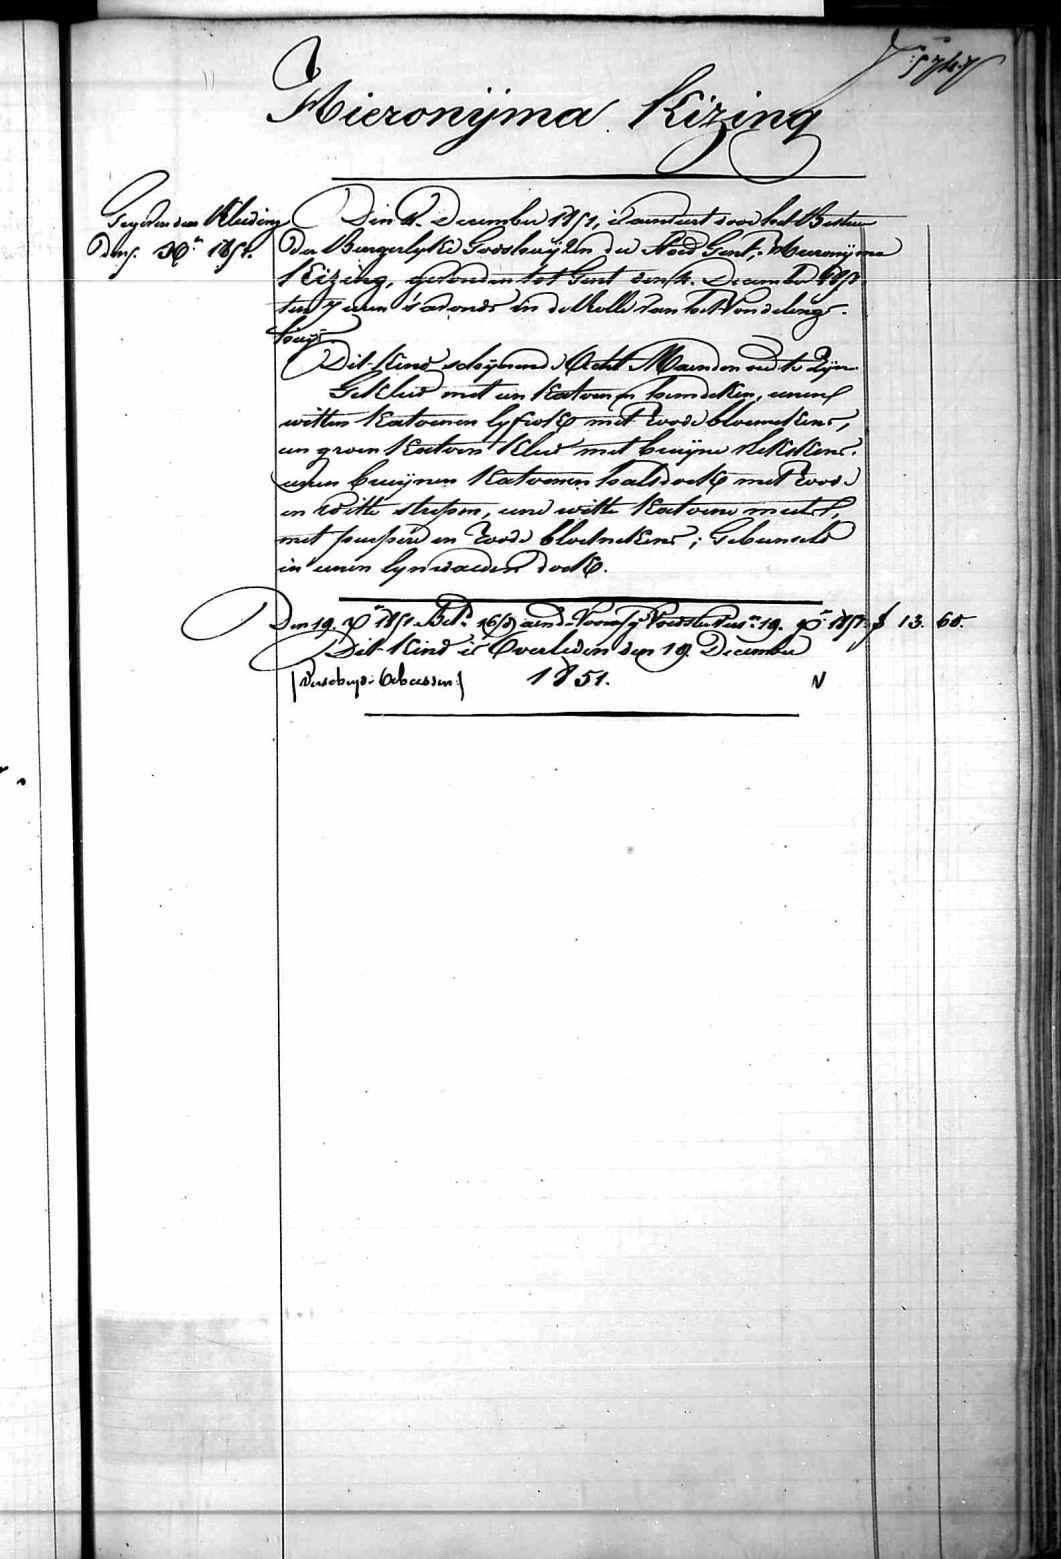 5747
Hieronijma Kizing
Gegeven eene Kleeding
Den 5. Xber 1851.
Den 4. December 1851, is aenveert door het Bestuer
der Burgerlyke Godshuijzen der Stad Gent, Hieronijma
Kizing, gevonden tot Gent den 4. December 1851
ten 7 uren 's avonds in de Rolle van het Vondelings-
huijs
Dit Kind schijnende Acht Maenden oud te Zijn
Gekleed met een Katoenen hemdeken, eenen
witten Katoenen lyfrok met Roode bloemekens,
een groen Katoen Kleed met bruijne plekskens.
eenen bruijnen Katoenen halsdoek met Roode
en Witte strepen, eene witte Katoene muts,
met purpere en Roode bloemekens; Gebunseld
in eenen lynwaeden doek.
Den 19 Xber 1851 Bet. aen 19. Xber 1851 f 13. 60.
Dit Kind is Overleden den 19 December
1851. N